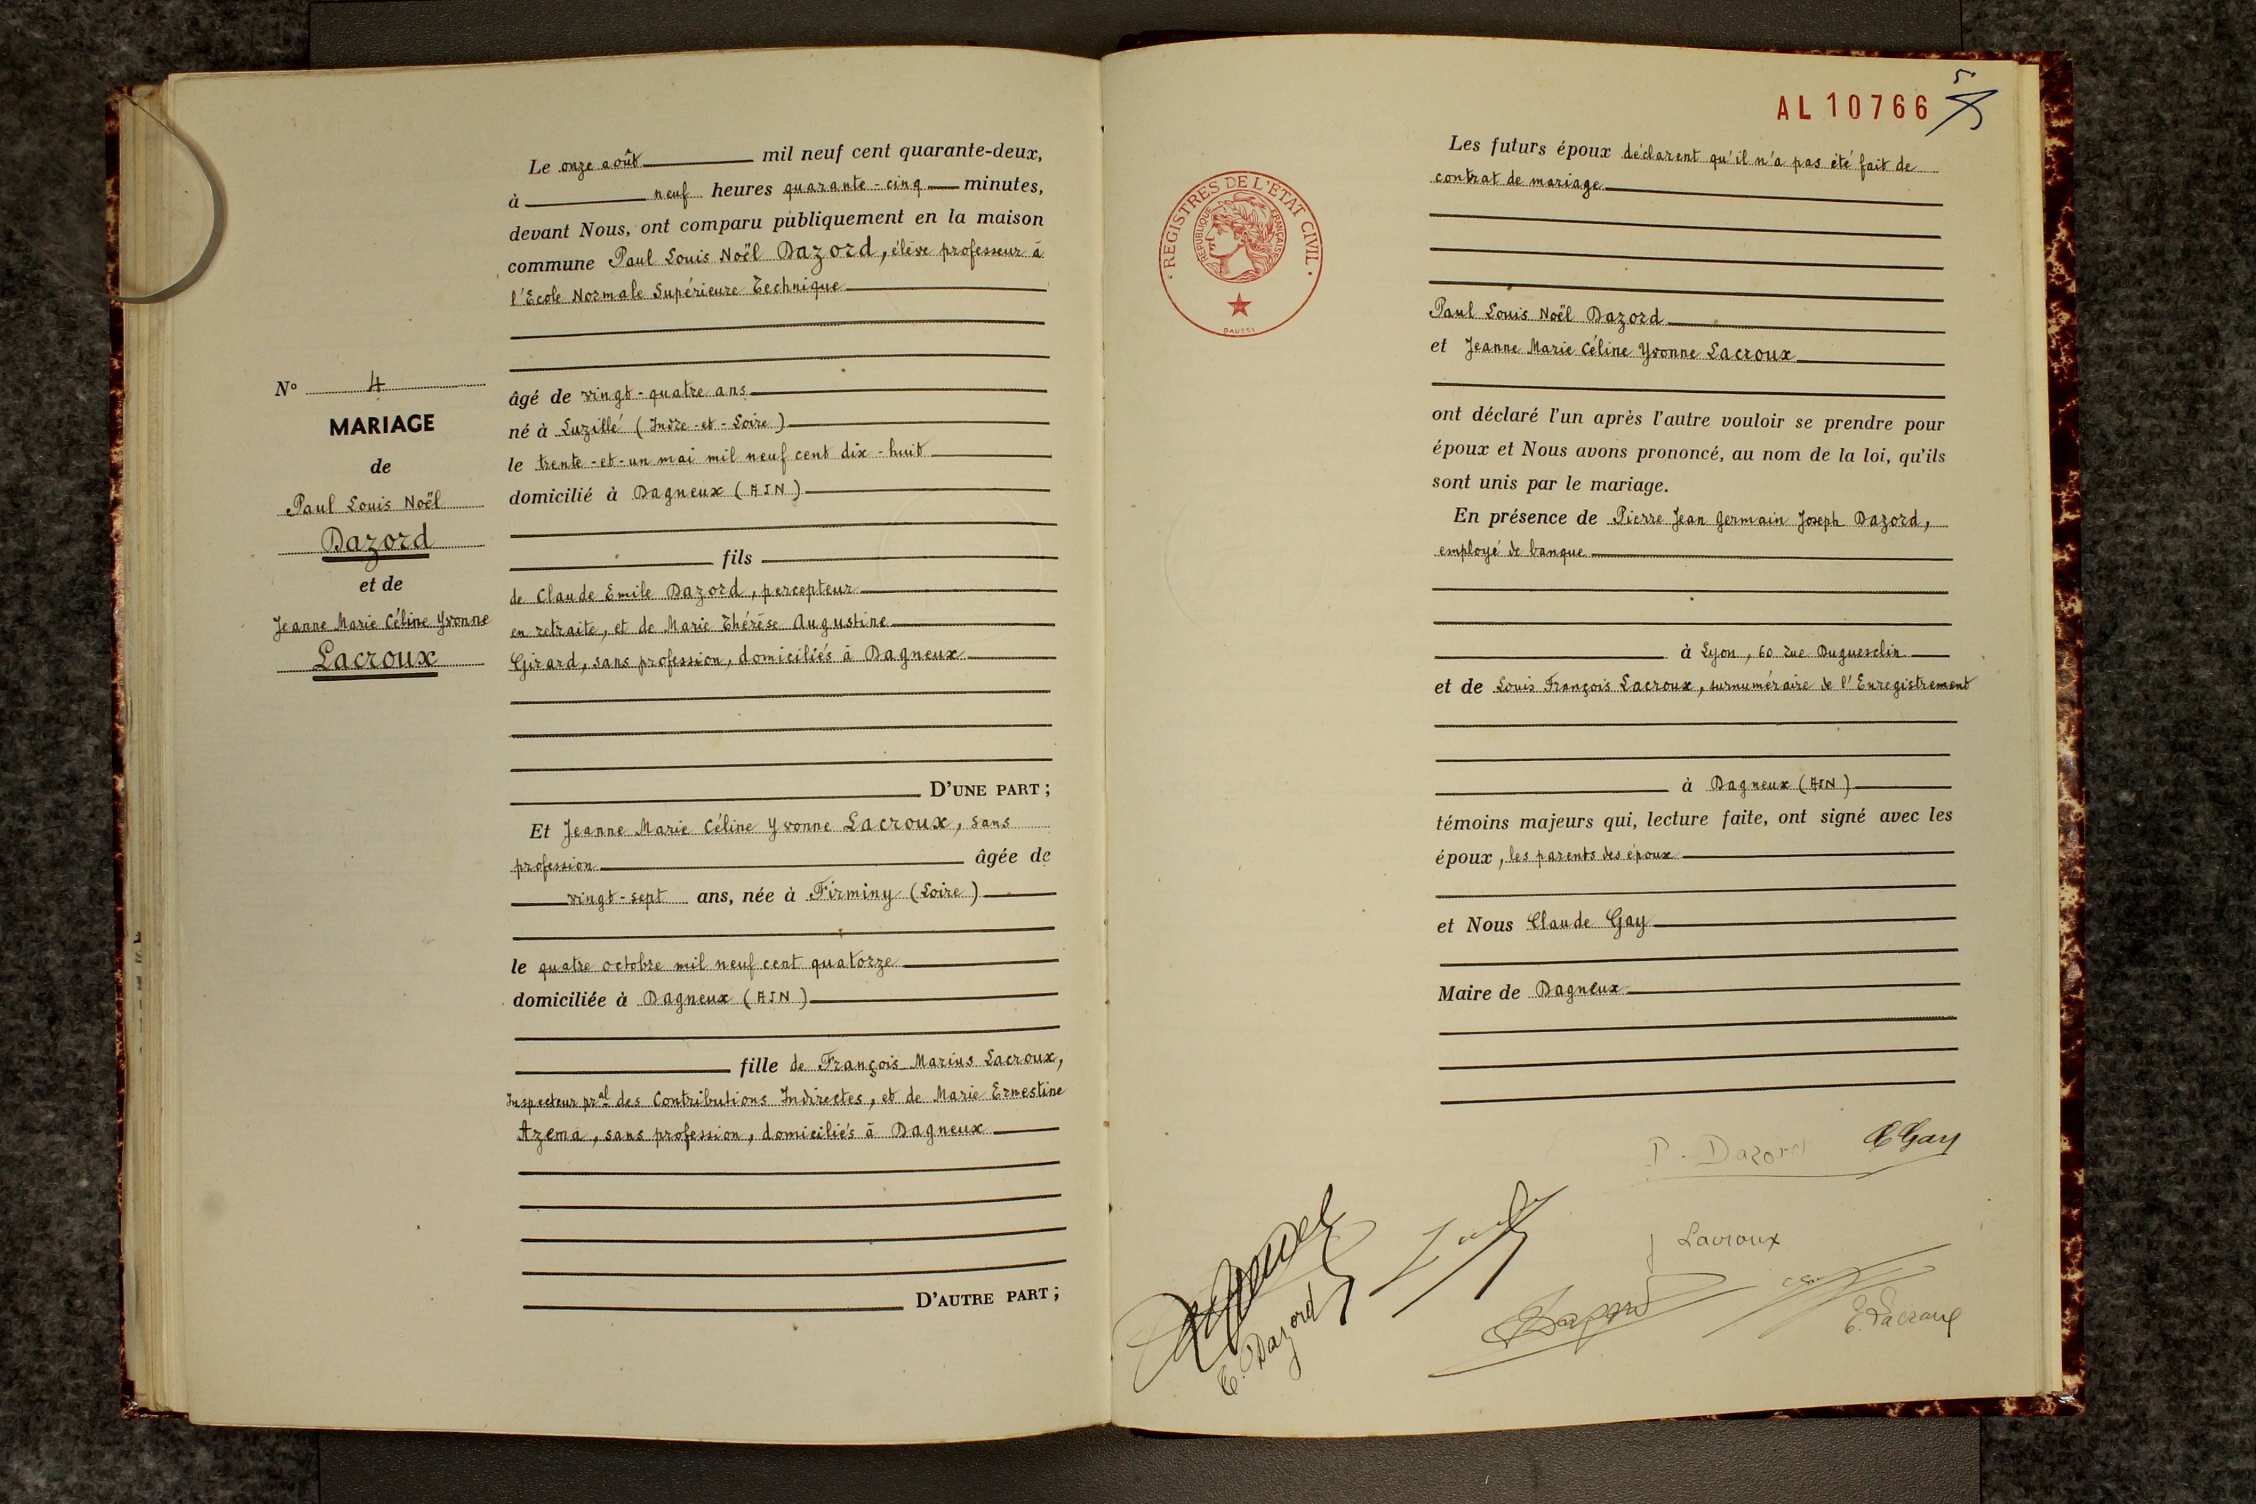 N° 4
MARIAGE
de
Paul Louis Noël
Dazord
et de
Jeanne Marie Céline Yvonne
Lacroux
Le onze août mil neuf cent quarante-deux,
à neuf heures quarante-cinq minutes,
devant Nous, ont comparu publiquement en la maison
commune Paul Louis Noël Dazord, élève professeur à
l'Ecole Normale Supérieure Technique
âgé de vingt-quatre ans
né à Luzillé (Indre-et-Loire)
le trente-et-un mai mil neuf cent dix-huit
domicilié à Dagneux (AIN)
fils
de Claude Emile Dazord, percepteur
en retraite, et de Marie Thérèse Augustine
Girard, sans profession, domiciliés à Dagneux
D'UNE PART ;
Et Jeanne Marie Céline Yvonne Lacroux, sans
profession âgée de
vingt-sept ans, née à Firminy (Loire)
le quatre octobre mil neuf cent quatorze
domiciliée à Dagneux (AIN)
fille de François Marius Lacroux,
Inspecteur pral des Contributions Indirectes, et de Marie Ernestine
Azema, sans profession, domiciliés à Dagneux
D'AUTRE PART ;
AL 10766
5
REGISTRES DE L'ETAT CIVIL
REPUBLIQUE FRANÇAISE
Les futurs époux déclarent qu'il n'a pas été fait de
contrat de mariage
Paul Louis Noël Dazord
et Jeanne Marie Céline Yvonne Lacroux
ont déclaré l'un après l'autre vouloir se prendre pour
époux et Nous avons prononcé, au nom de la loi, qu'ils
sont unis par le mariage.
En présence de Pierre Jean Germain Joseph Dazord,
employé de banque
à Lyon, 60 rue Duguesclin
et de Louis François Lacroux, surnuméraire de l'Enregistrement
à Dagneux (AIN)
témoins majeurs qui, lecture faite, ont signé avec les
époux, les parents des époux
et Nous Claude Gay
Maire de Dagneux
P. Dazord
C Gay
J Lacroux
E. Lacroux
E. Dazord